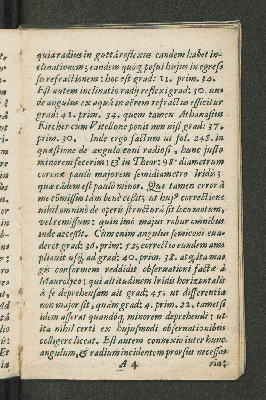 quia radius in guttâ reflexus eandem habet in-
clinationem; eandem quoq; posui hujus in egres-
su refractionem: hoc est grad: 11. prim. 34.
Est autem inclinatio radij reflexi grad: 30. un-
de angulus ex aquâ in aërem refractus efficitur
grad: 41. prim. 34. quem tamen Athanasius
Kircher cum Vitellone ponit non nisi grad: 37.
prim. 30. Inde ergò factum ut fol. 245. in
quæstione de angulo coni radiosi, hunc justo
minorem fecerim: & in Theor: 98. diametrum
coronæ paulò majorem semidiametro Iridis;
quæ eâdem est paulò minor. Qui tamen error à
me commissus tàm benè cessit, ut hujus correctione
nihil omninò de operis structurâ sit locô motum,
vel remissum; quin imò major robur omnibus
inde accessit. Cùm enim angulus semiconi eua-
deret grad: 36. prim: 52. correctio eundem am-
pliavit usq; ad grad: 40. prim. 38. atq; ita ma-
gis conformem reddidit observationi factæ à
Maurolyco; qui altitudinem Iridis horizontalis
à se deprehensam ait grad: 45. ut differentia
non major sit, quàm grad: 4. prim. 22. tametsi
idem asserat quandoq, minorem deprehendi: ut
ita nihil certi ex hujusmodi observationibus
colligere liceat. Est autem connexio inter hunc
angulum, & radium incidentem prorsus necessa-
A 4 ria: